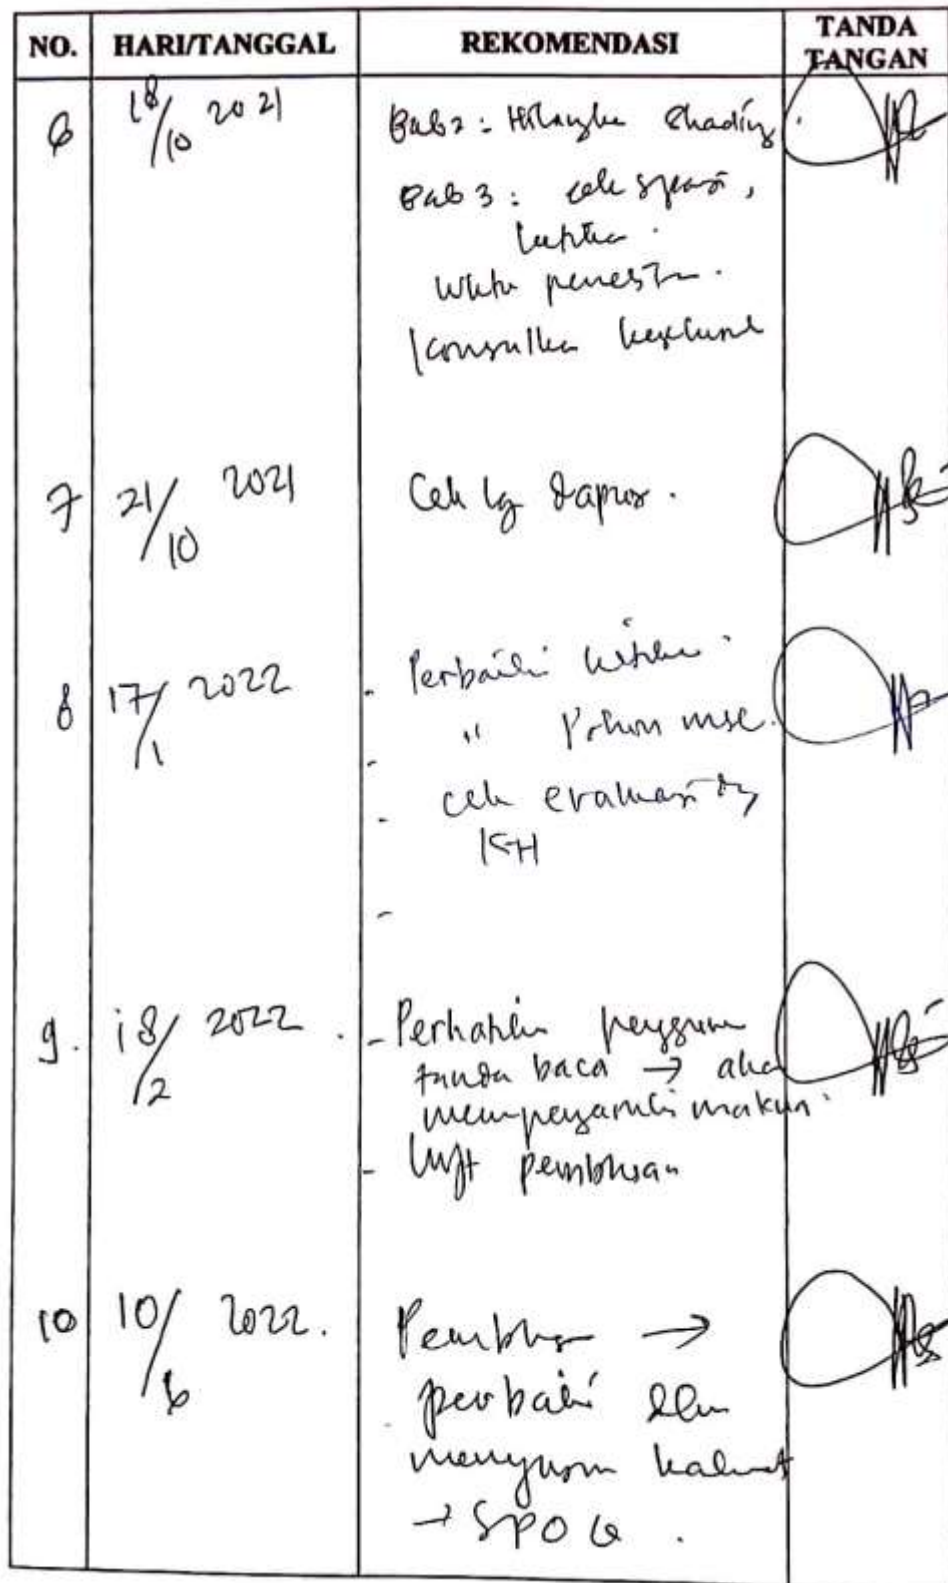 NO. HARI/TANGGAL REKOMENDASI TANDA TANGAN
6 18/10 2021 Bab 2 : Hilangka Shading
Bab 3 : cek spasi,
penelitn.
konsulka keseluruh
7 21/10 2021 Cek lg dapus.
8 17/1 2022 - Perbaiki
- " Pohon msl.
- cek evaluasi dg
KH
-
9. 18/2 2022. - Perhatikn penggunn
tanda baca → aka
mempengaruhi makna.
- Lnjt pembhsan
10 10/6 2022. Pembhsn →
perbaiki dlm
menyusun kalimat
→ SPOK.